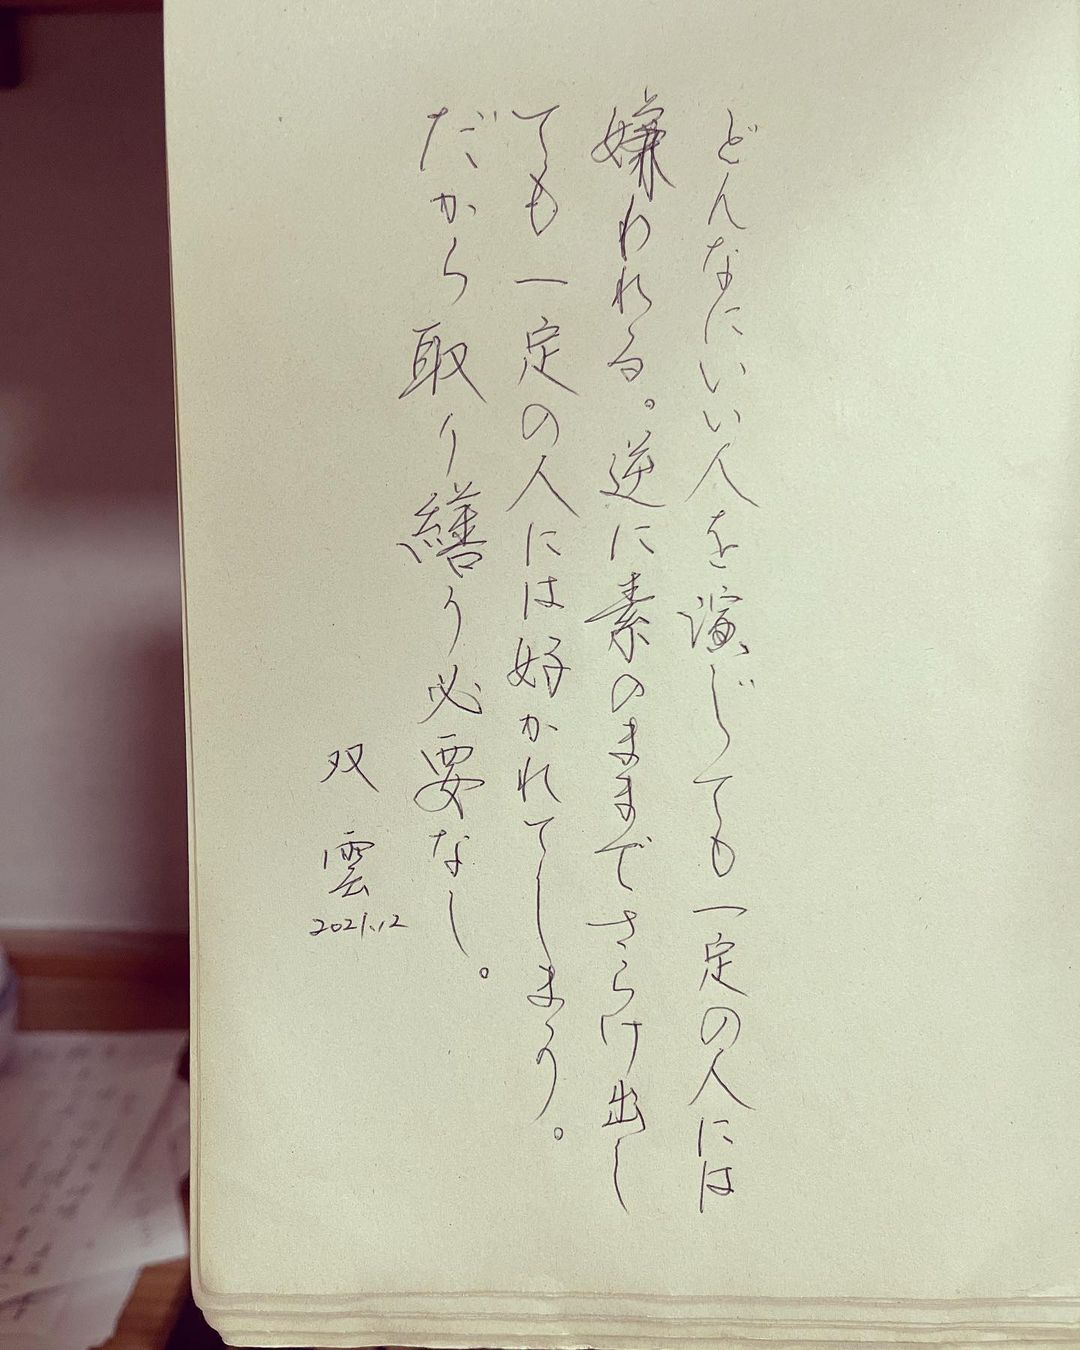 どんなにいい人を演じっても一定の人には
嫌われる。逆に素のままでさらけ出し
ても一定の人には好かれてしまう。
だから取り繕う必要なし。
双雲
2021.12